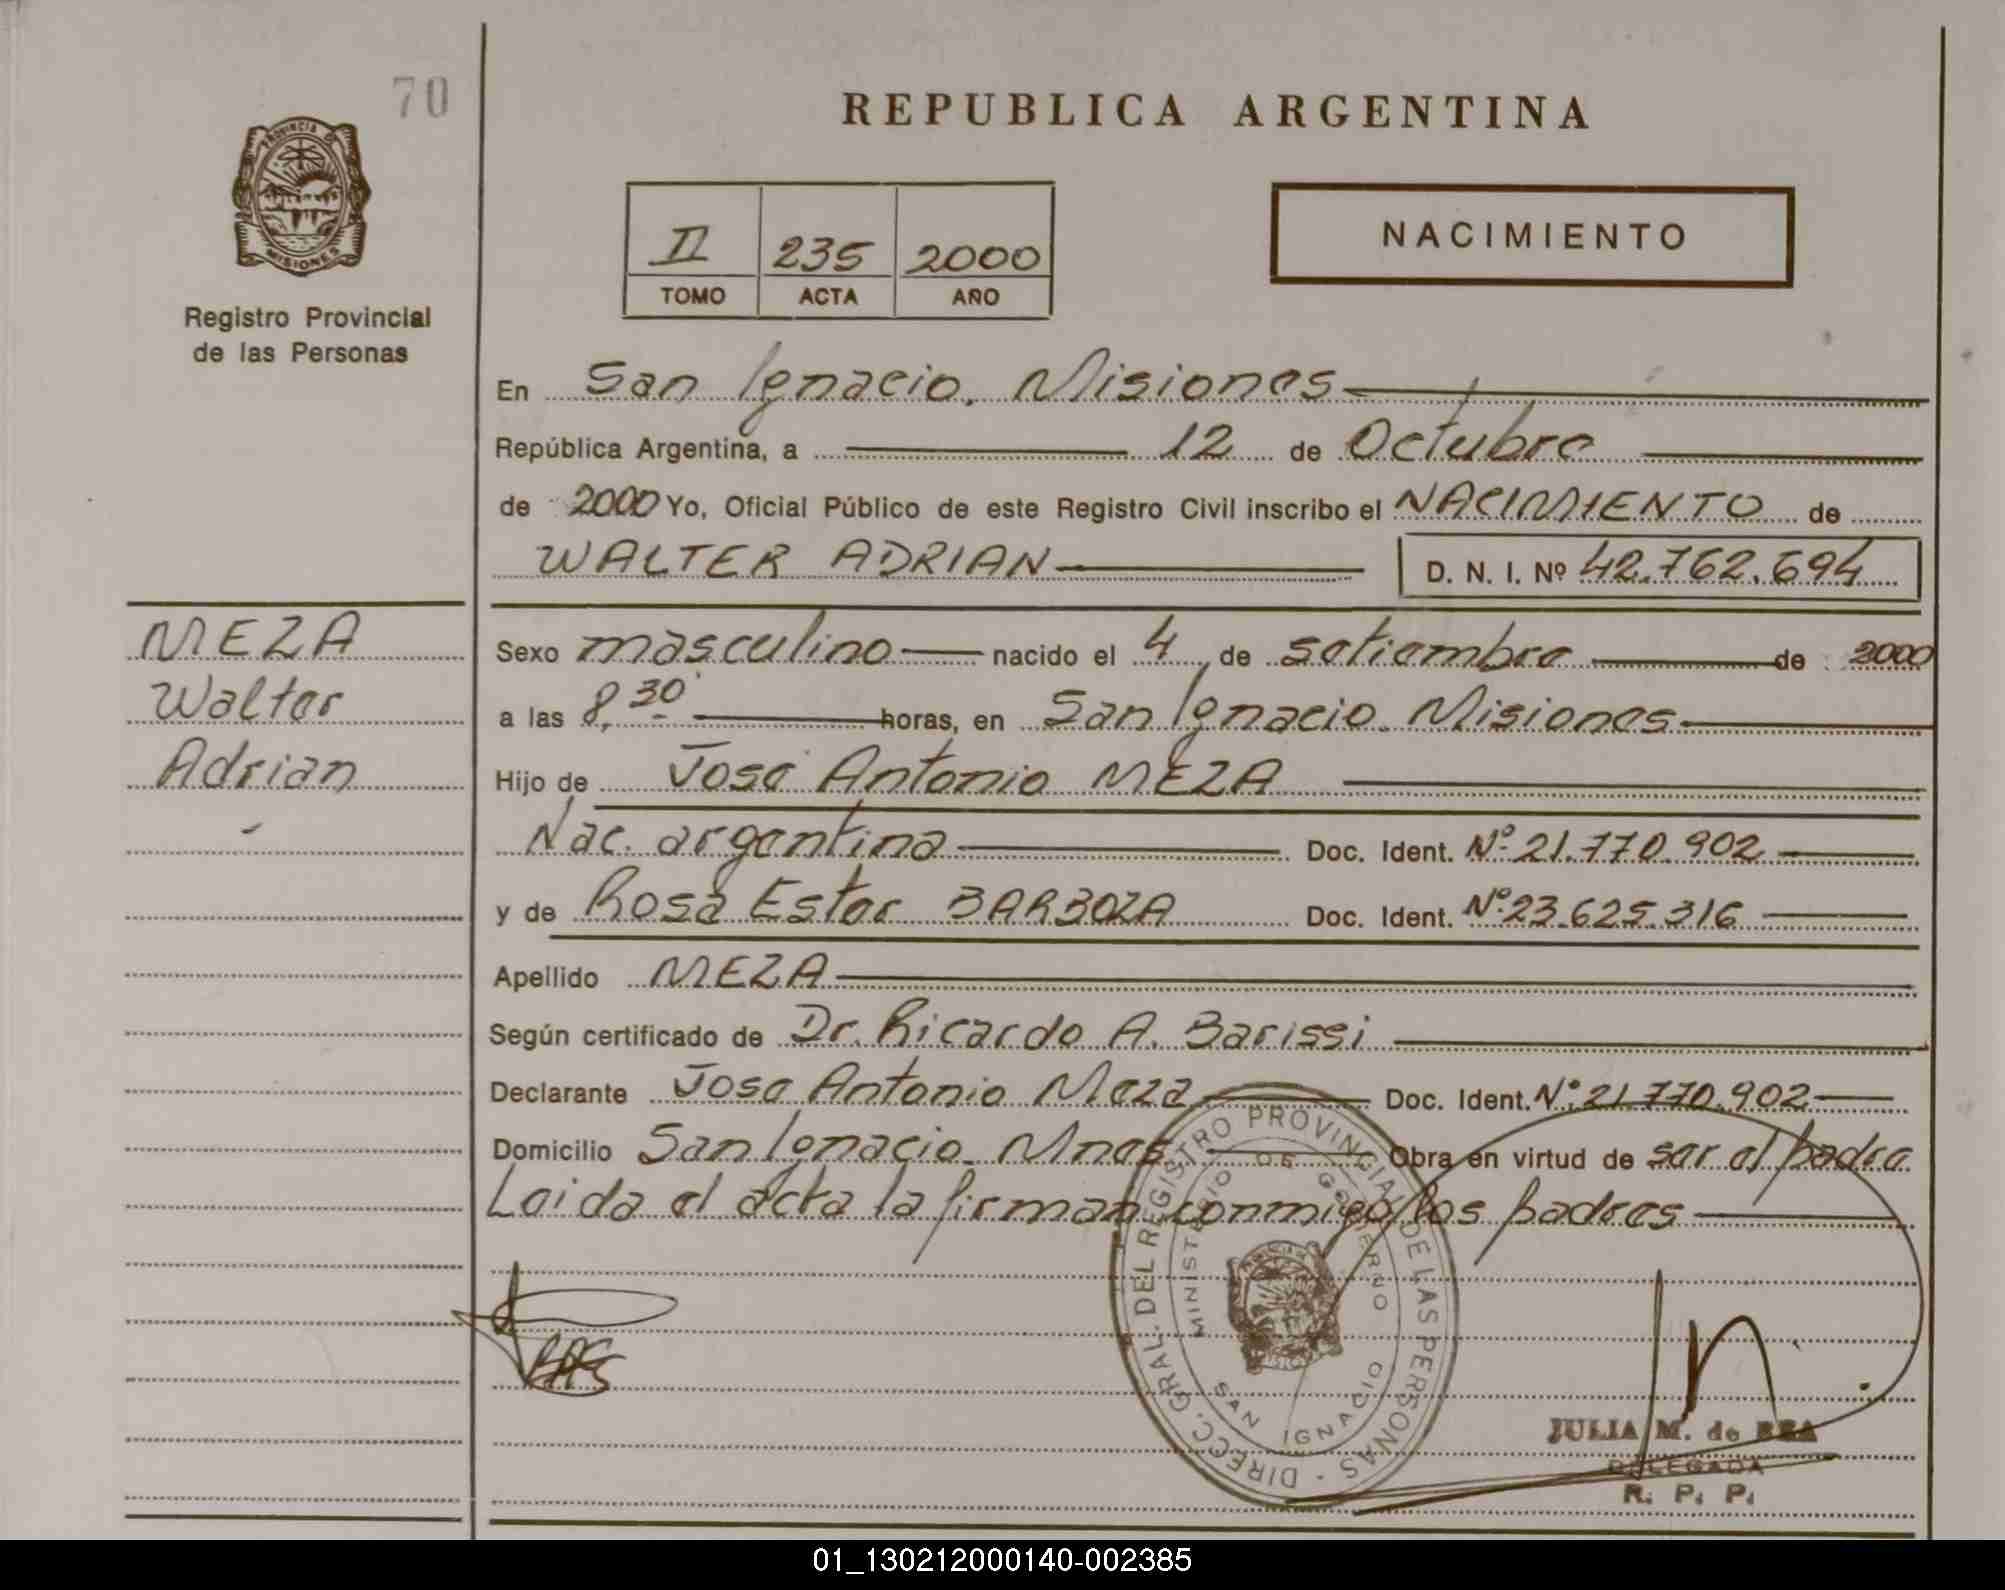 70
REPUBLICA ARGENTINA
PROVINCIA DE
MISIONES
Registro Provincial
de las Personas
II 235 2000
TOMO ACTA AÑO
NACIMIENTO
En San Ignacio. Misiones
República Argentina, a 12 de Octubre
de 2000 Yo, Oficial Público de este Registro Civil inscribo el NACIMIENTO de
WALTER ADRIAN D. N. I. Nº 42.762.694
MEZA
Walter
Adrian
Sexo masculino nacido el 4 de setiembre de 2000
a las 8,30 horas, en San Ignacio. Misiones
Hijo de José Antonio MEZA
Nac. argentina Doc. Ident. Nº 21.770.902
y de Rosa Ester BARBOZA Doc. Ident. Nº 23.625.316
Apellido MEZA
Según certificado de Dr. Ricardo A. Barissi
Declarante Jose Antonio Meza Doc. Ident. Nº 21.770.902
Domicilio San Ignacio. Mnes Obra en virtud de ser el padre
Leida el acta la firman conmigo los padres
DIRECC. GRAL. DEL REGISTRO PROVINCIAL DE LAS PERSONAS
MINISTERIO DE GOBIERNO
SAN IGNACIO
JULIA M. de REA
DELEGADA
R. P. P.
01_130212000140-002385